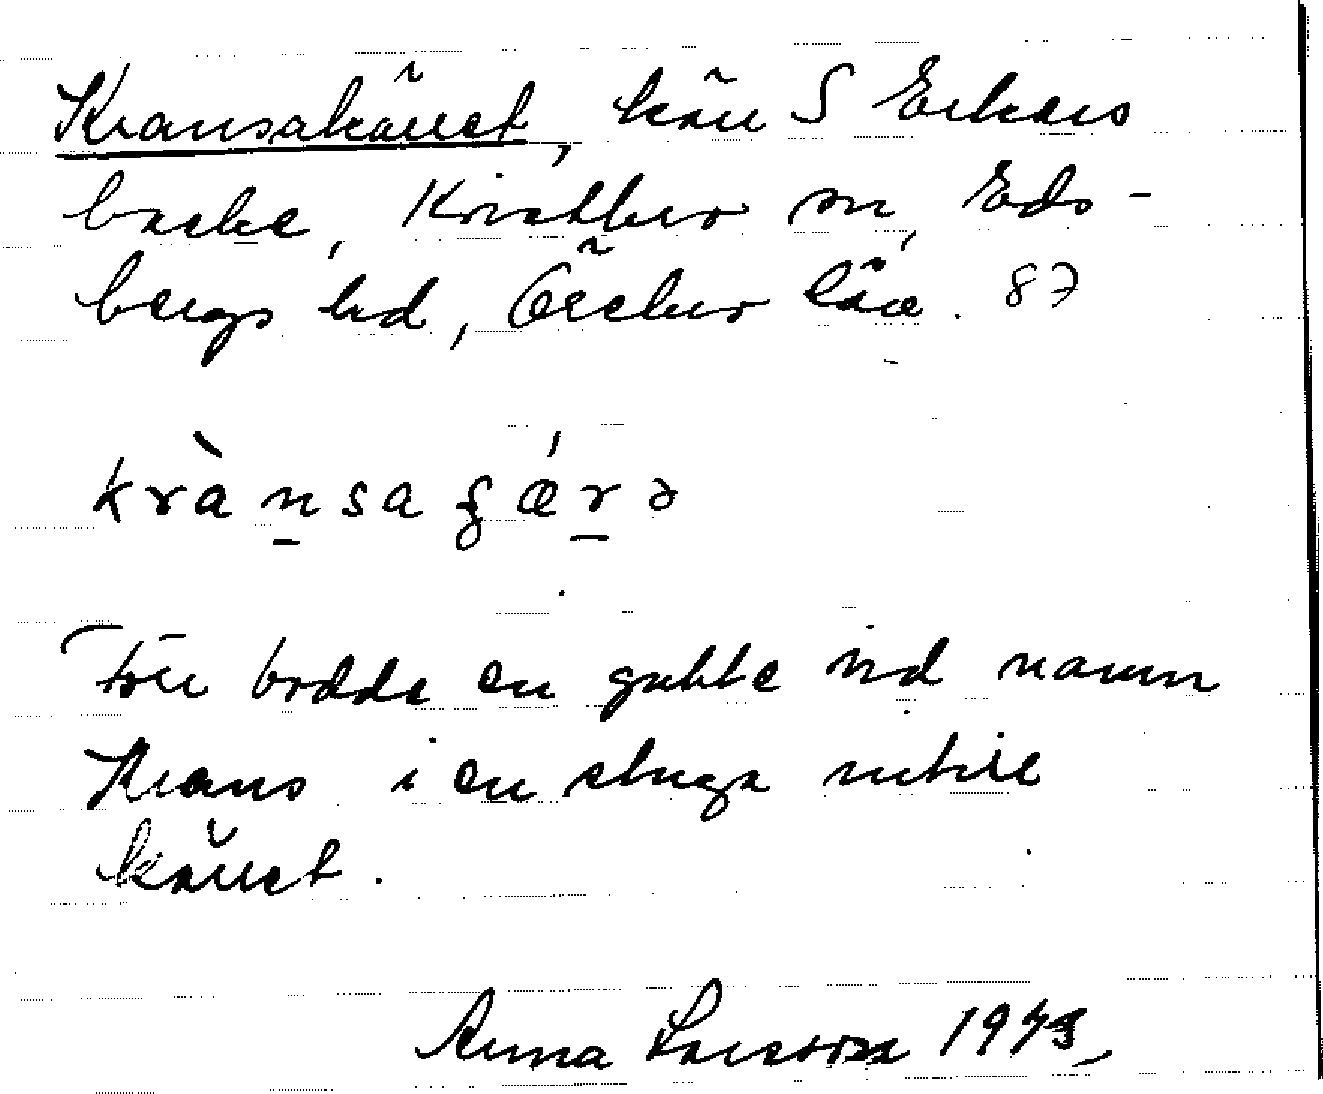 Kransakärret, kärr S Erkers
backe, Kvistbro sn, Eds-
bergs hd, Örebro län. 87
krànsaʂǽrə
Förr bodde en gubbe vid namn
Krans i en stuga intill
kärret.
Anna Larsson 1973